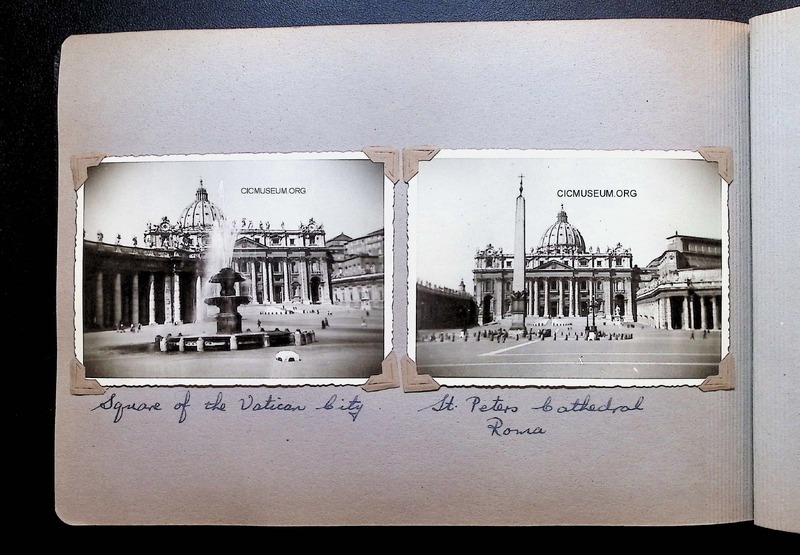 CICMUSEUM.ORG
CICMUSEUM.ORG
Square of the Vatican City
St. Peters Cathedral
Roma